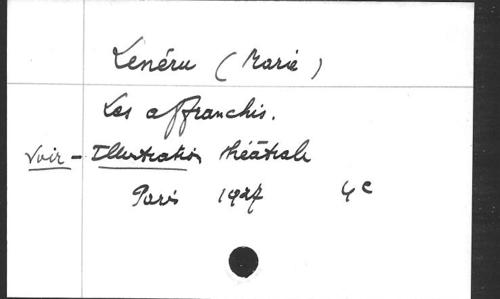 Lenéru (Marie)
Les affranchis.
Voir - Illustration théâtrale
Paris 1927 4º